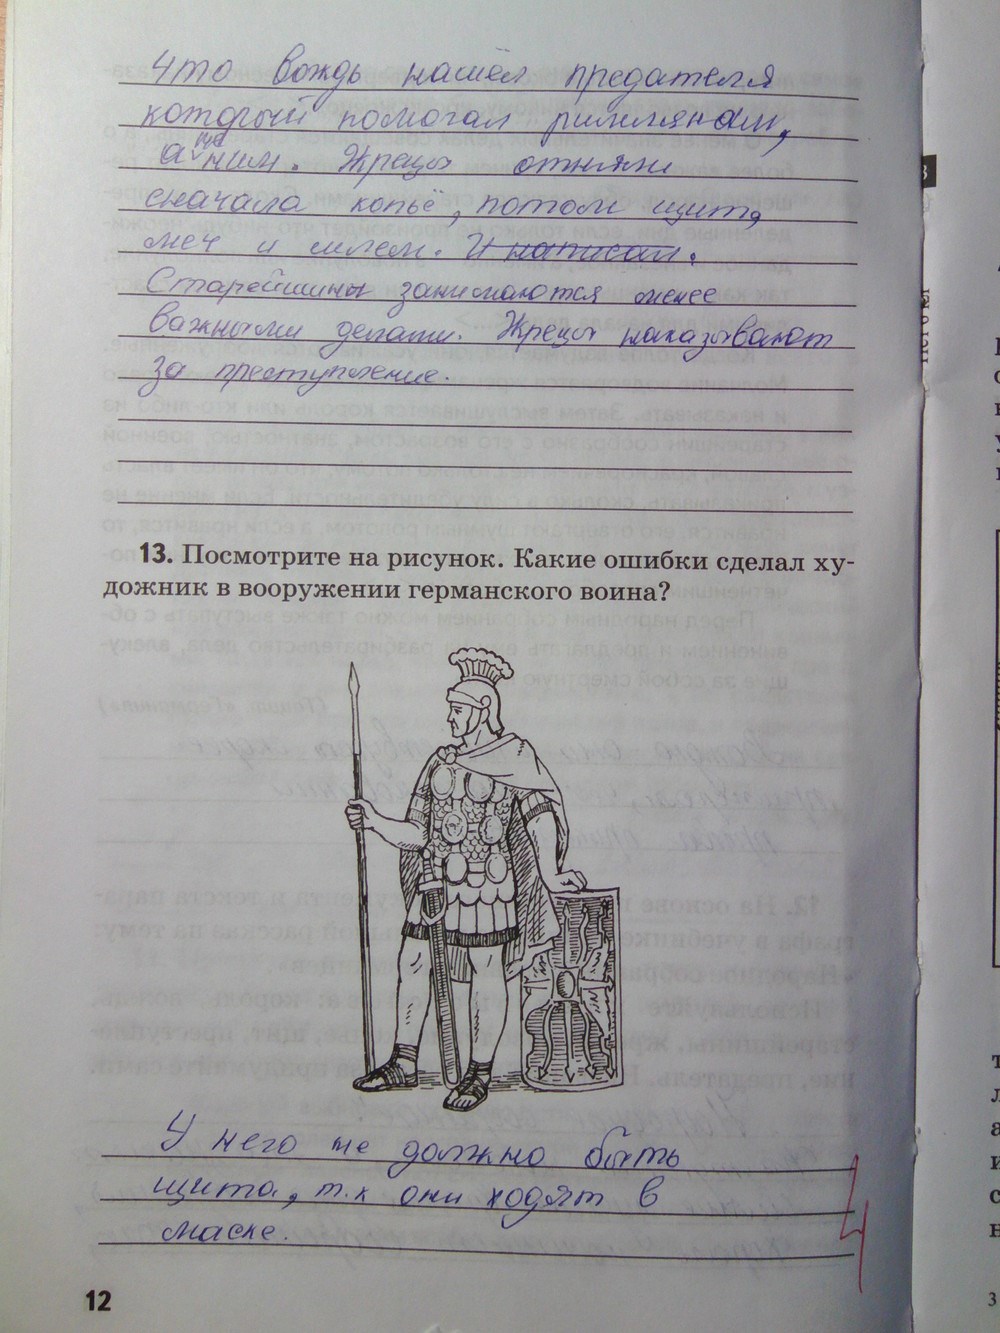 что вождь нашёл предателя
который помогал римлянам,
а не им. Жрецы отняли
сначала копьё, потом щит,
меч и шлем. И написал.
Старейшины занимаются менее
важными делами. Жрецы наказывают
за преступление.
13. Посмотрите на рисунок. Какие ошибки сделал ху-
дожник в вооружении германского воина?
У него не должно быть
щита, т.к они ходят в
маске.
4
12
3